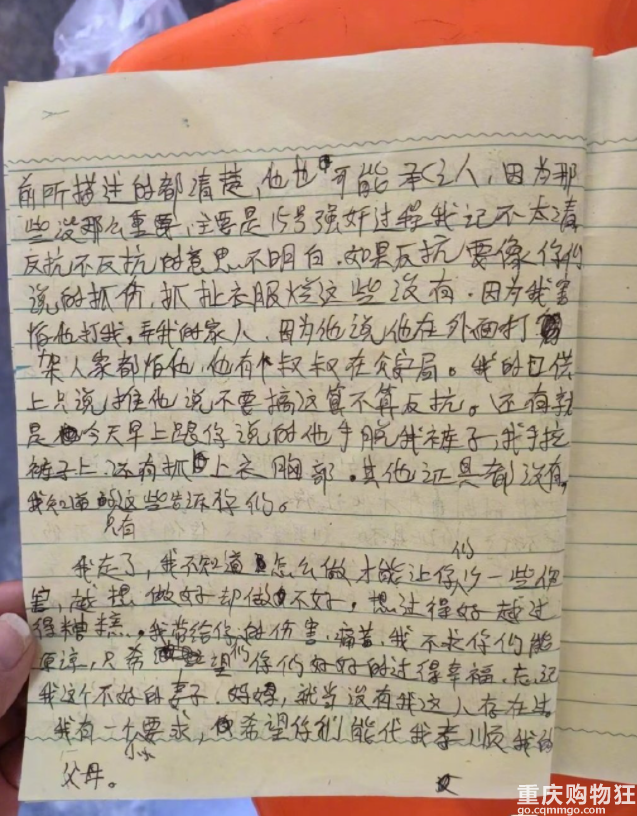 前所描述的都清楚,他也可能承认,因为那
些没那么重要,主要是15号强奸过程我记不太清
反抗不反抗的意思不明白.如果反抗要像你们
说的抓伤,抓扯衣服烂这些没有.因为我害
怕他打我,弄我的家人,因为他说他在外面打
架人家都怕他,他有个叔叔在公安局。我的口供
上只说推他说不要搞这算不算反抗。还有就
是今天早上跟你说的他手脱我裤子,我手拉
裤子上,还有抓上衣胸部.其他证具都没有,
我知道的只有这些告诉你们。
我走了,我不知道怎么做才能让你们少一些伤
害,越想做好却做不好.想过得好越过
得糟糕.我带给你的伤害.痛苦.我不求你们能
原谅,只希望你们好好的过得幸福.忘记
我这个不好的妻子.妈妈,就当没有我这人存在过
我有一个小小要求,希望你们能代我孝顺我的
父母。
重庆购物狂
go.cqmmgo.com